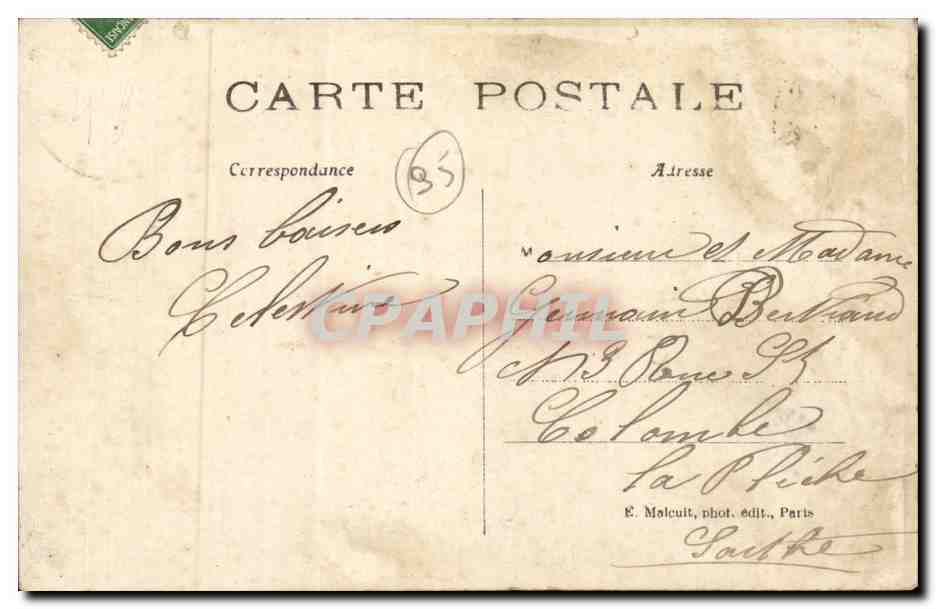 FRANÇAISE
CARTE POSTALE
Correspondance
35
Adresse
Bons baisers
Celestine
Monsieur et Madame
Germain Bertrand
N 3 Rue St
Colombe
la Flèche
E. Malcuit, phot. édit., Paris
Sarthe
CPAPHIL